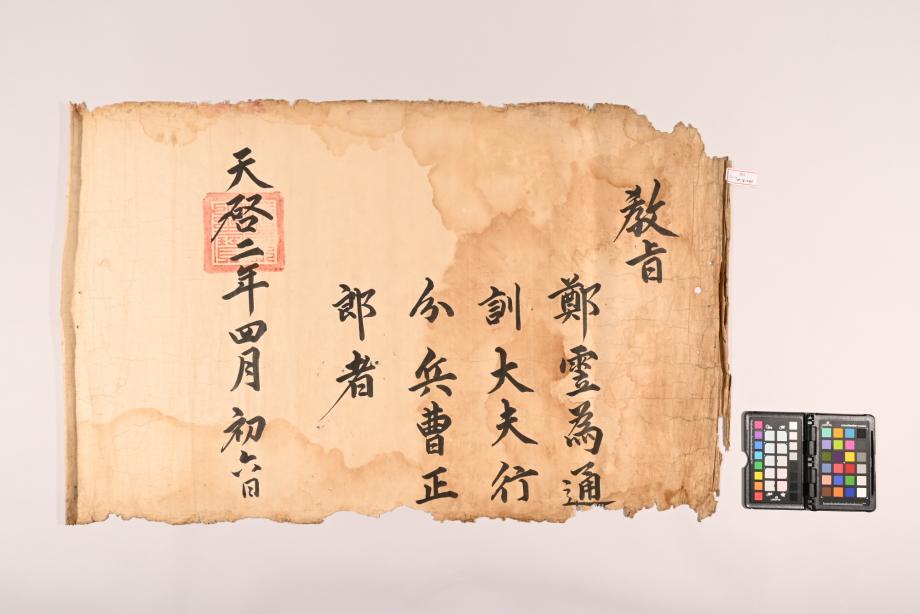 教旨
鄭霊為通
訓大夫行
分兵曹正
郎者
天啓二年四月初六日